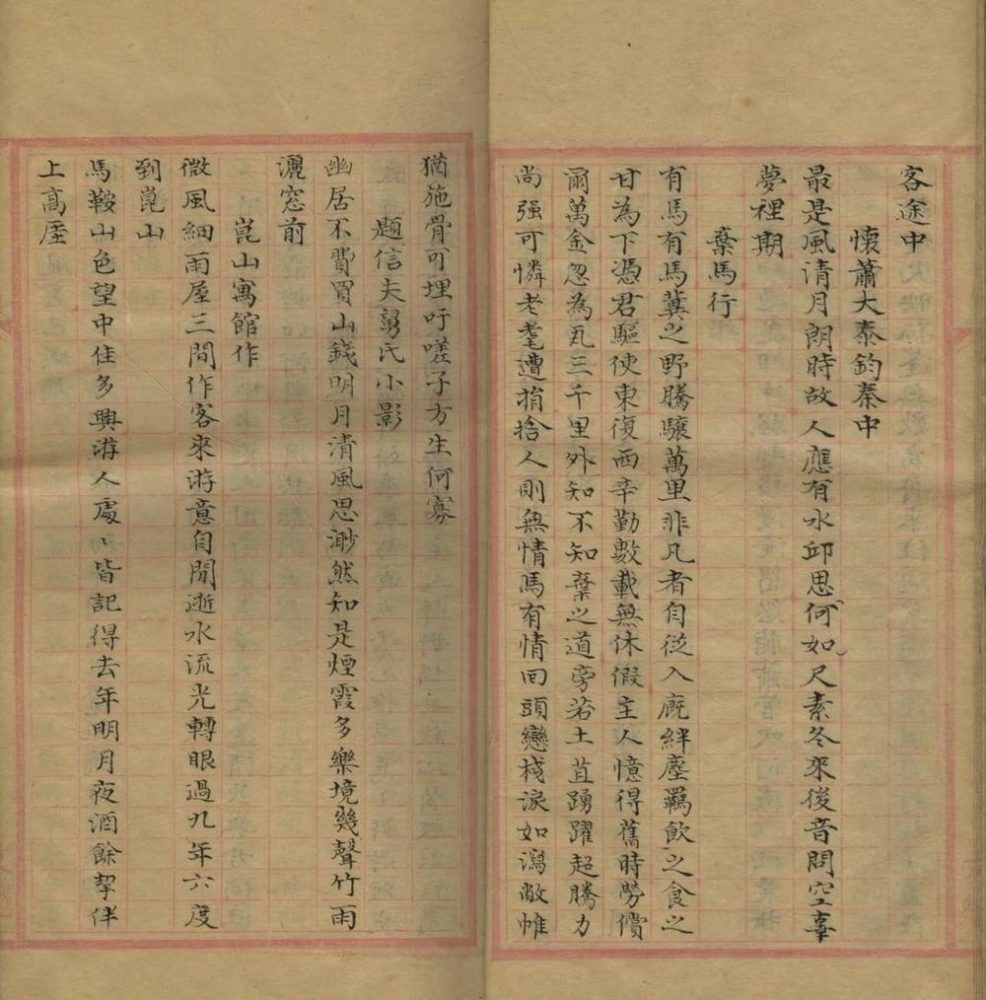 客途中
懷蕭大泰鈞秦中
最是風清月朗時故人應有水邱思何如尺素冬來後音問空辜
夢裡期
棄馬行
有馬有馬冀之野騰驤萬里非凡者自從入廐絆塵羈飲之食之
甘為下憑君驅使東復西辛勤數載無休假主人憶得舊時勞償
爾萬金忽為瓦三千里外知不知棄之道旁若土苴踴躍起騰力
尚强可憐老耄遭捐捨人則無情馬有情回頭戀棧淚如瀉敝帷
猶施骨可埋吁嗟子方生何寡
題信夫舅氏小影
幽居不費買山錢明月清風思渺然知是煙霞多樂境幾聲竹雨
灑窓前
崑山寓館作
微風細雨屋三間作客來游意自閒逝水流光轉眼過九年六度
到崑山
馬鞍山色望中佳多興游人處〻皆記得去年明月夜酒餘挈伴
上高崖